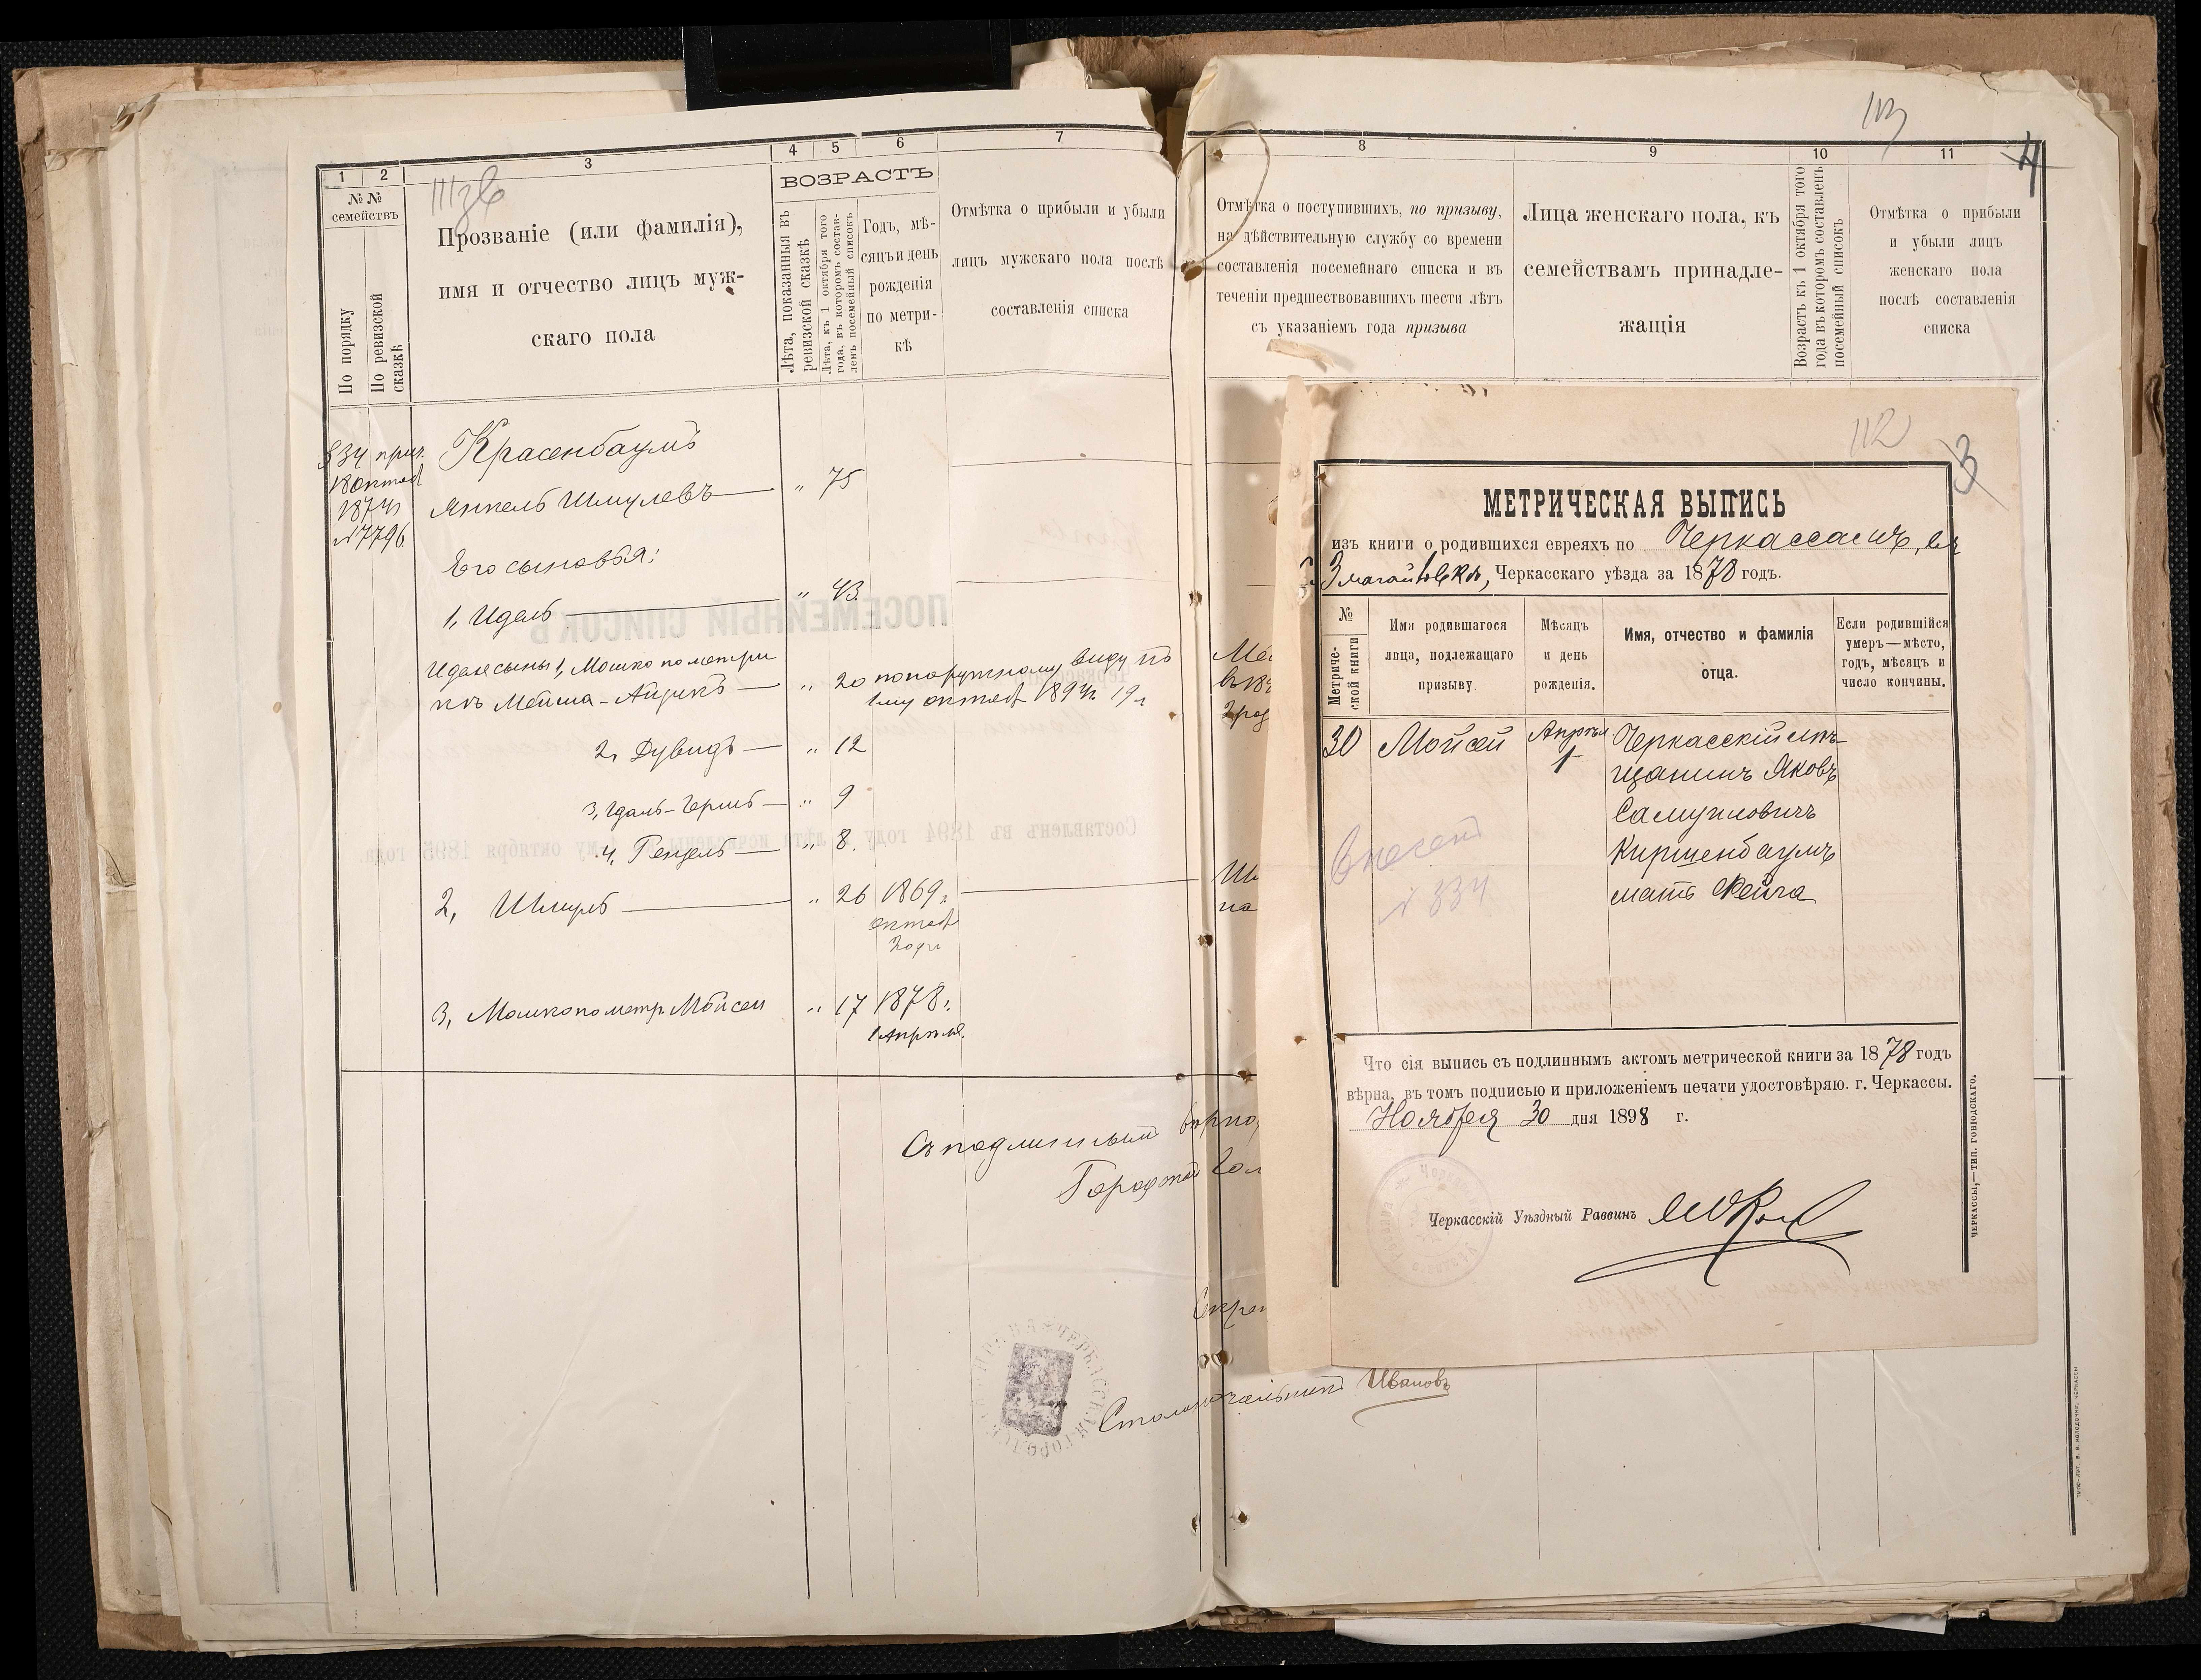 1
2
3
4
5
6
7
№№ семействъ
По порядку
По ревизской сказкѣ
Прозваніе (или фамилія),
имя и отчество лицъ муж-
скаго пола
ВОЗРАСТЪ
Лѣта, показанныя въ
ревизской сказкѣ
Лѣта, къ 1 октября того
года, въ которомъ состав-
ленъ посемейный списокъ
Годъ, мѣ-
сяцъ и день
рожденія
по метри-
кѣ
Отмѣтка о прибыли и убыли
лицъ мужскаго пола послѣ
составленія списка
334 прип.
18 октяб
1874 г
№ 7796
Красенбаумъ
Янкель Шмулевъ " 75
Его сыновья:
1, Идель " 43.
Иделя сыны 1, Мошко по метри
кѣ Мойша-Айзикъ " 20 по наружному виду къ
1му октяб 1894 г. 19 л
2, Дувидъ " 12
3, Удаль-Гершъ " 9
4, Гецель " 8.
2, Шмуль " 26 1869 г.
октяб
3, Мошко по метр. Мойсей " 17 1878 г.
1 Апрѣля.
Съ подлиннымъ вѣрно
Городской Гол
Секре
Столоначальникъ Ивановъ
8
9
10
11
113
4
Отмѣтка о поступившихъ, по призыву,
на дѣйствительную службу со времени
составленія посемейнаго списка и въ
теченіи предшествовавшихъ шести лѣтъ
съ указаніемъ года призыва
Лица женскаго пола, къ
семействамъ принадле-
жащія
Возрастъ къ 1 октября того
года въ которомъ составленъ
посемейный списокъ
Отмѣтка о прибыли
и убыли лицъ
женскаго пола
послѣ составленія
списка
112
3
МЕТРИЧЕСКАЯ ВЫПИСЬ
изъ книги о родившихся евреяхъ по Черкассамъ,
Змагайловкѣ, Черкасскаго уѣзда за 1878 годъ.
№
Метриче-
ской книги
Имя родившагося
лица, подлежащаго
призыву.
Мѣсяцъ
и день
рожденія.
Имя, отчество и фамилія
отца.
Если родившійся
умеръ—мѣсто,
годъ, мѣсяцъ и
число кончины.
30 Мойсей Апрѣл. 1 Черкасскій мѣ-
щанинъ Яковъ
Самуиловичъ
Киршенбаумъ
мать Фейга
Внесенъ
№ 334
Что сія выпись съ подлиннымъ актомъ метрической книги за 1878 годъ
вѣрна, въ томъ подписью и приложеніемъ печати удостовѣряю. г. Черкассы.
Ноября 30 дня 1898 г.
Черкасскій Уѣздный Раввинъ
ЧЕРКАССЫ,—ТИП. ГОНІОДСКАГО.